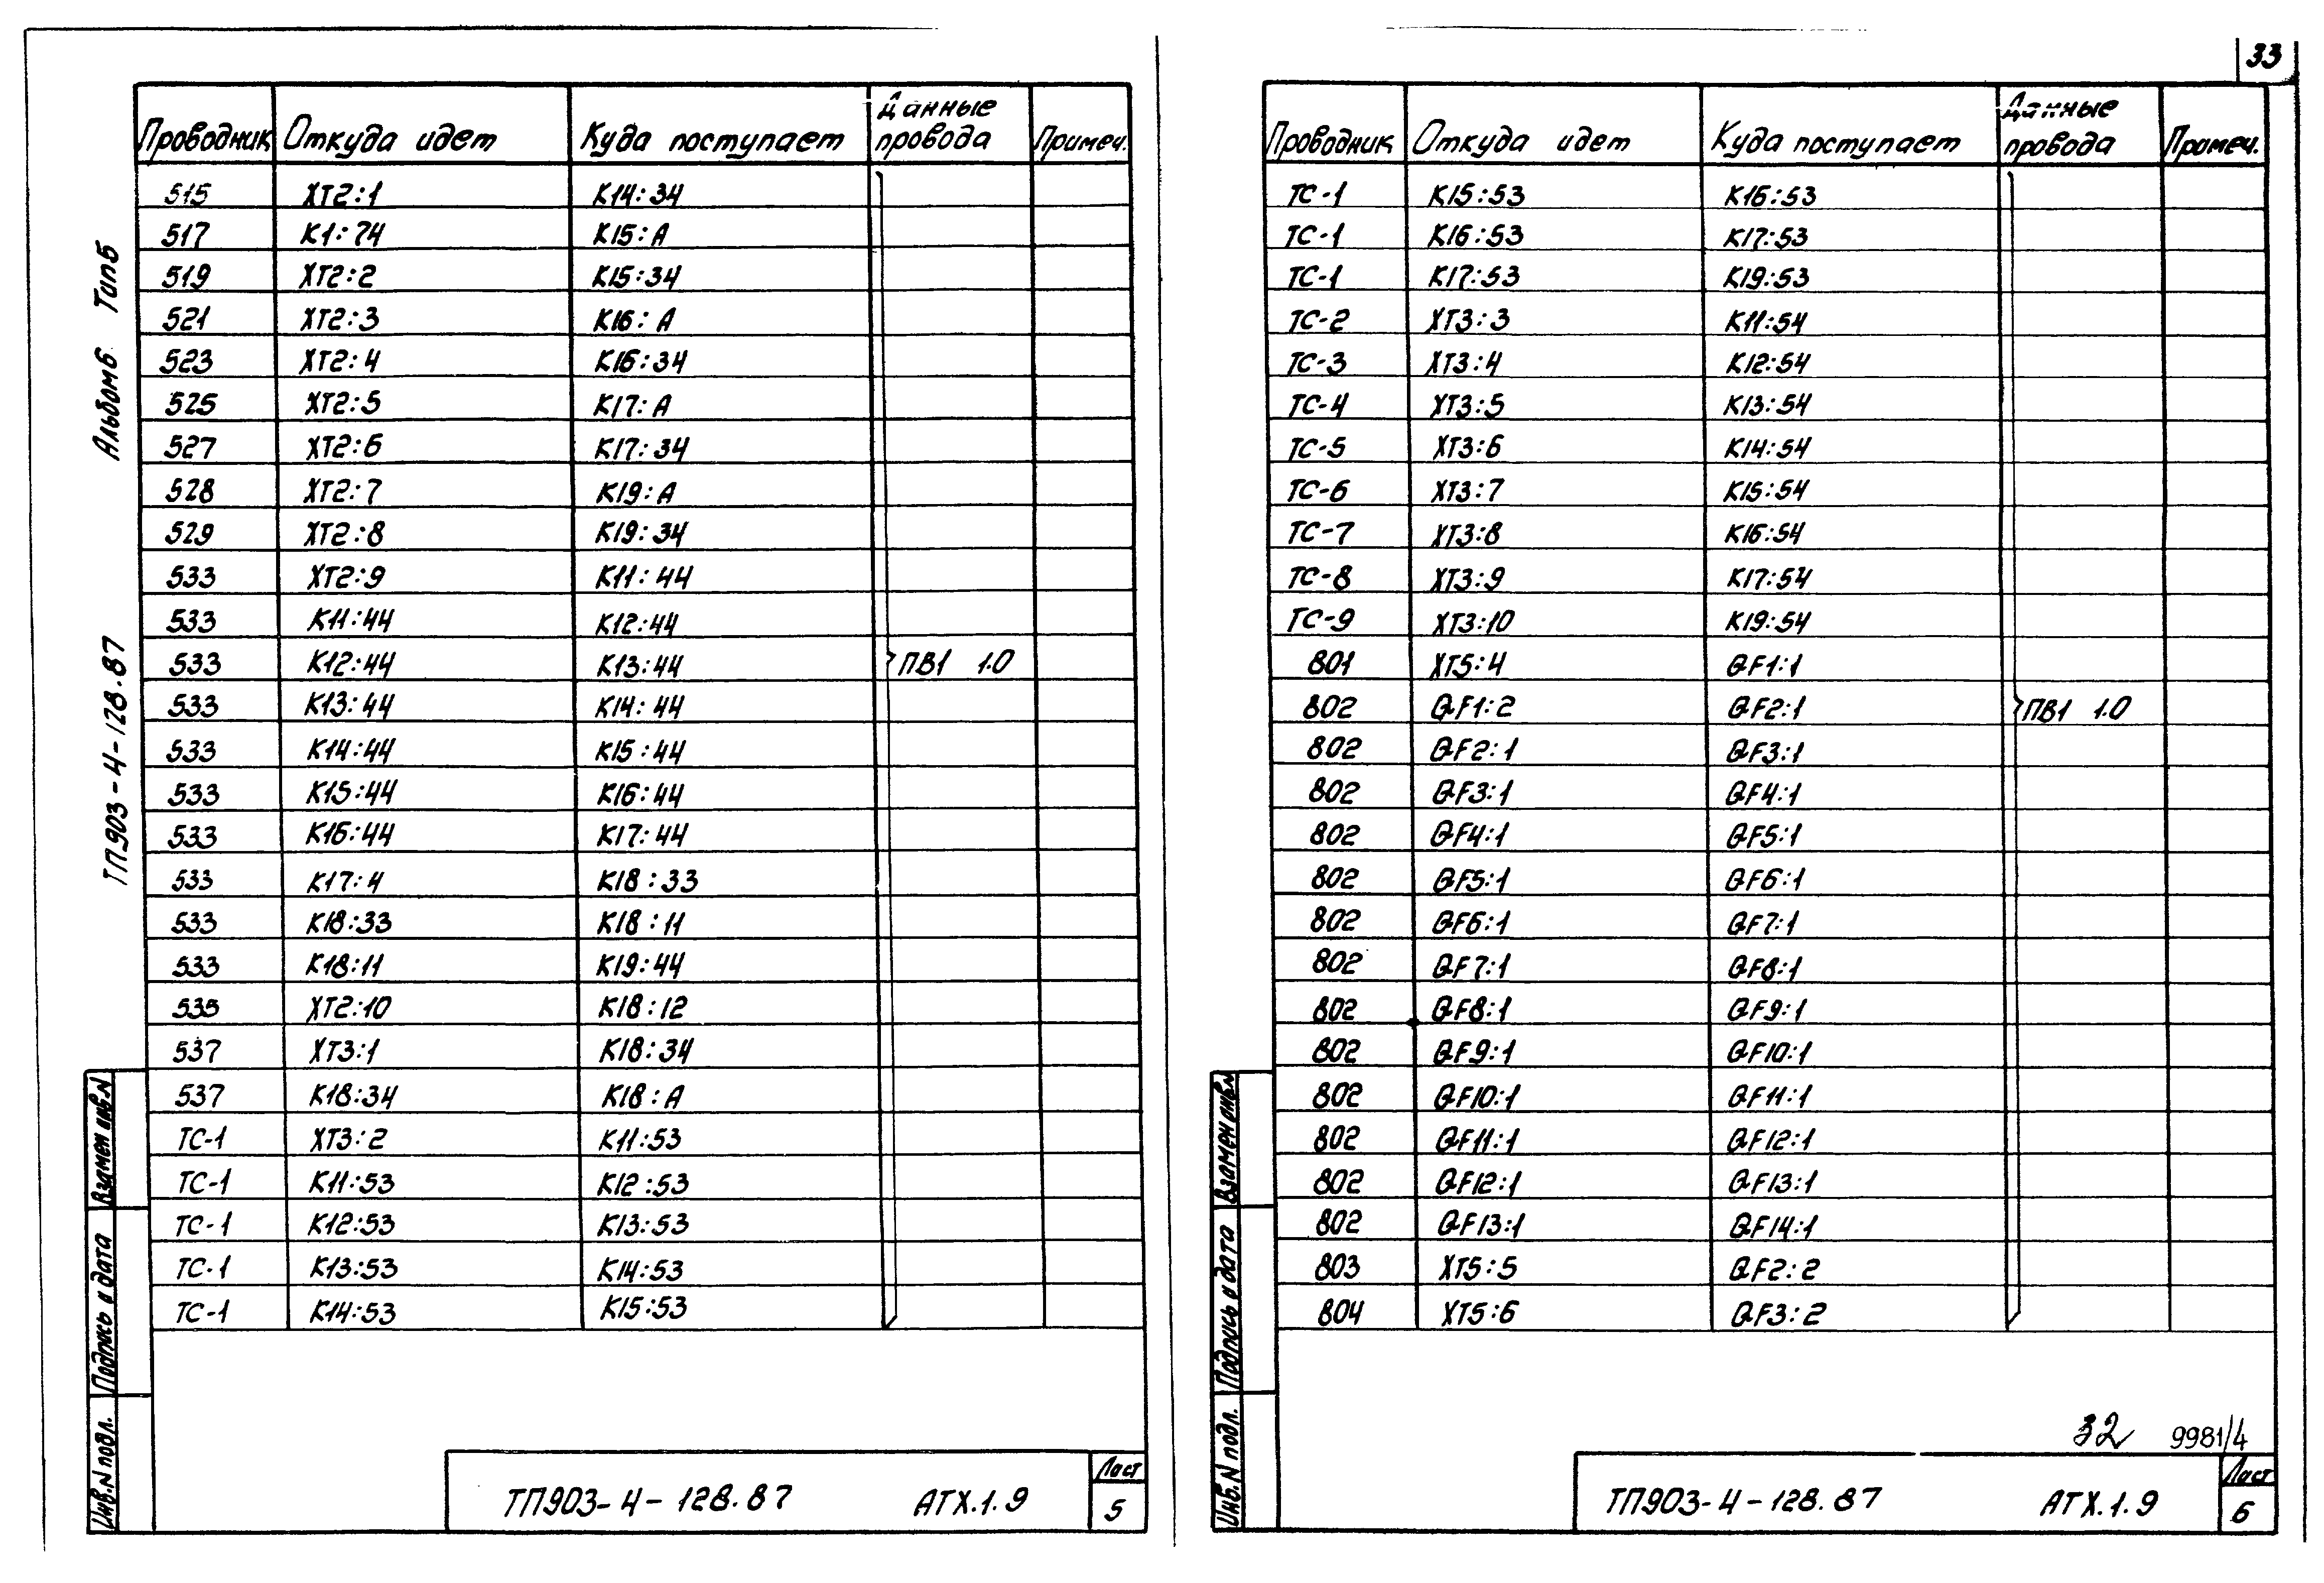 33
Проводник Откуда идет Куда поступает Данные провода Примеч.
515 XT2:1 K14:34
517 K1:74 K15:A
519 XT2:2 K15:34
521 XT2:3 K16:A
523 XT2:4 K16:34
525 XT2:5 K17:A
527 XT2:6 K17:34
528 XT2:7 K19:A
529 XT2:8 K19:34
533 XT2:9 K11:44
533 K11:44 K12:44
533 K12:44 K13:44 ПВ1 1.0
533 K13:44 K14:44
533 K14:44 K15:44
533 K15:44 K16:44
533 K16:44 K17:44
533 K17:4 K18:33
533 K18:33 K18:11
533 K18:11 K19:44
535 XT2:10 K18:12
537 XT3:1 K18:34
537 K18:34 K18:A
TC-1 XT3:2 K11:53
TC-1 K11:53 K12:53
TC-1 K12:53 K13:53
TC-1 K13:53 K14:53
TC-1 K14:53 K15:53
ТП903-4-128.87 АТХ.1.9
Лист
5
ТП903-4-128.87 Альбом6 Тип5
Взамен инв.N
Подпись и дата
Инв.N подл.
Проводник Откуда идет Куда поступает Данные провода Примеч.
TC-1 K15:53 K16:53
TC-1 K16:53 K17:53
TC-1 K17:53 K19:53
TC-2 XT3:3 K11:54
TC-3 XT3:4 K12:54
TC-4 XT3:5 K13:54
TC-5 XT3:6 K14:54
TC-6 XT3:7 K15:54
TC-7 XT3:8 K16:54
TC-8 XT3:9 K17:54
TC-9 XT3:10 K19:54
801 XT5:4 QF1:1
802 QF1:2 QF2:1 ПВ1 1.0
802 QF2:1 QF3:1
802 QF3:1 QF4:1
802 QF4:1 QF5:1
802 QF5:1 QF6:1
802 QF6:1 QF7:1
802 QF7:1 QF8:1
802 QF8:1 QF9:1
802 QF9:1 QF10:1
802 QF10:1 QF11:1
802 QF11:1 QF12:1
802 QF12:1 QF13:1
802 QF13:1 QF14:1
803 XT5:5 QF2:2
804 XT5:6 QF3:2
32 9981/4
ТП903-4-128.87 АТХ.1.9
Лист
6
Взамен инв.N
Подпись и дата
Инв.N подл.